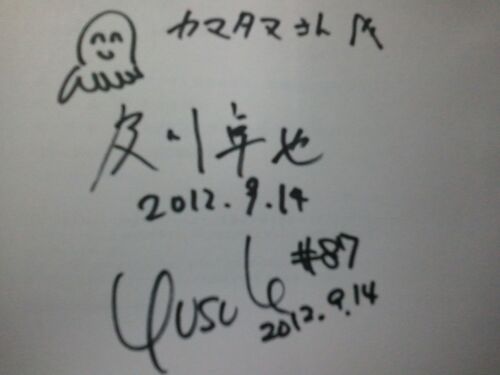 カマタマさん江
皮川卓也
2012.9.14
#87
2012.9.14